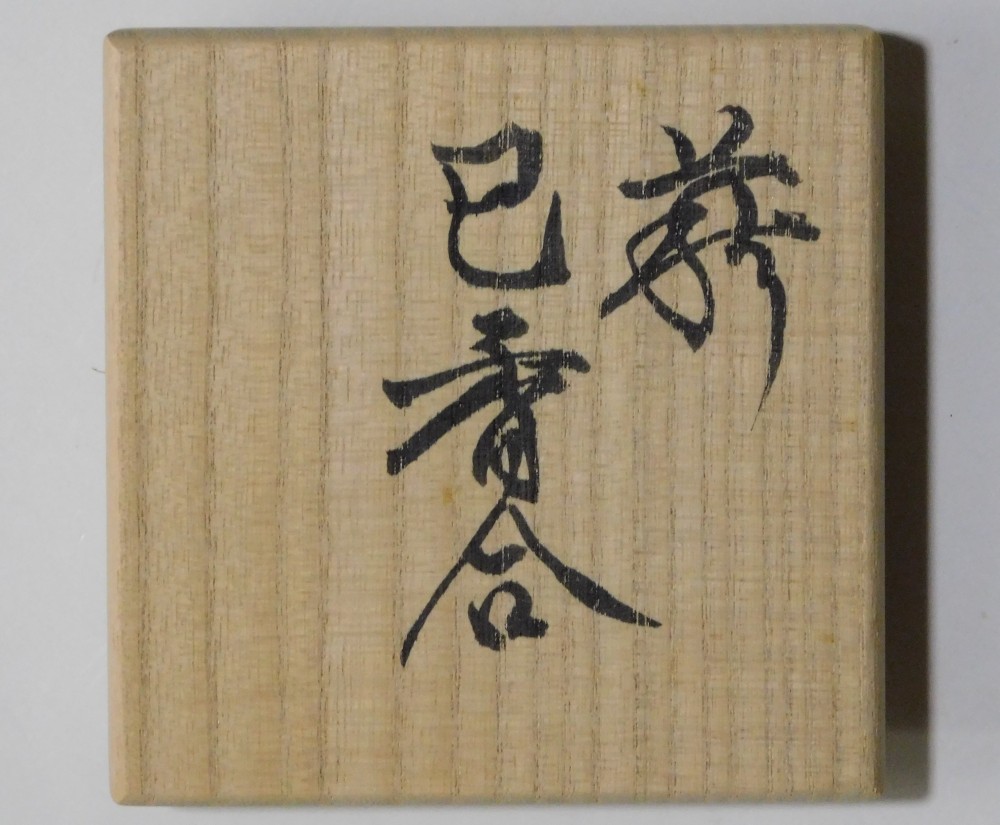 萩
巳香合